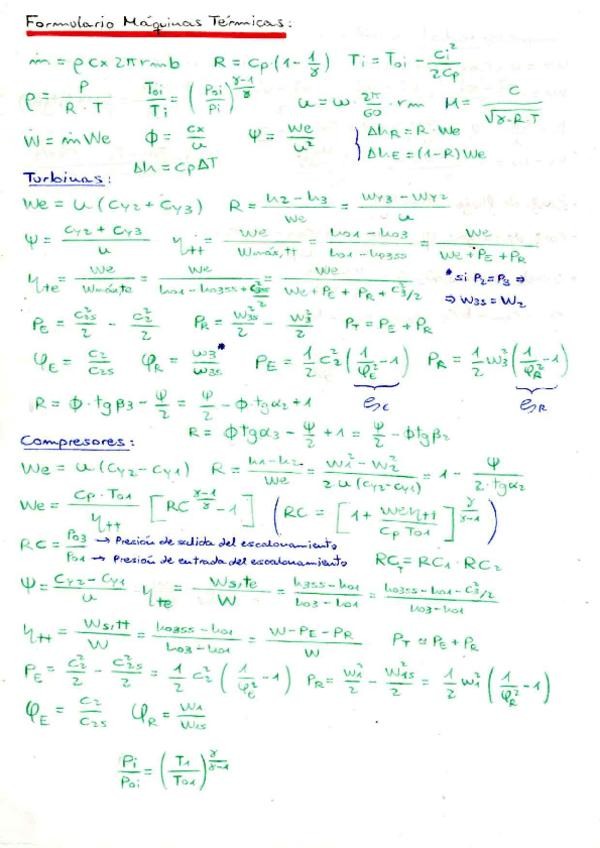 Formulario Máquinas Térmicas:
ṁ = ρ cx 2π rm b   R = cp(1 - 1/γ)   Ti = Toi - ci²/2cp
ρ = P/(R·T)   Toi/Ti = (Poi/Pi)^((γ-1)/γ)   u = ω · 2π/60 · rm   M = c/√(γ·R·T)
Ẇ = ṁ We   Φ = cx/u   Ψ = We/u²   } ΔhR = R·We
ΔhE = (1-R)We
Δh = cpΔT
Turbinas:
We = u(cy2 + cy3)   R = (h2 - h3)/We = (wy3 - wy2)/u
Ψ = (cy2 + cy3)/u   ηtt = We/Wmáx,tt = We/(ho1 - ho3ss) = We/(We + PE + PR)
ηte = We/Wmáx,te = We/(ho1 - ho3ss + c3ss²/2) = We/(We + PE + PR + c3²/2)   * si P2 = P3 ⇒
⇒ W3s = W2
PE = c2s²/2 - c2²/2   PR = w3s²/2 - w3²/2   PT = PE + PR
φE = c2/c2s   φR = w3*/w3s   PE = 1/2 c2² (1/φE² - 1)   PR = 1/2 w3² (1/φR² - 1)
R = Φ·tgβ3 - Ψ/2 = Ψ/2 - Φ·tgα2 + 1
R = Φtgα3 - Ψ/2 + 1 = Ψ/2 - Φtgβ2
Compresores:
We = u(cy2 - cy1)   R = (h1 - h2)/We = (w1² - w2²)/(2u(cy2 - cy1)) = 1 - Ψ/(2·tgα2)
We = (Cp·To1)/ηtt [RC^((γ-1)/γ) - 1]   (RC = [1 + We ηtt/(Cp To1)]^(γ/(γ-1)))
RC = Po3/Po1 → Presión de salida del escalonamiento
→ Presión de entrada del escalonamiento   RCT = RC1 · RC2
Ψ = (cy2 - cy1)/u   ηte = Ws,te/W = (h3ss - ho1)/(ho3 - ho1) = (ho3ss - ho1 - c3²/2)/(ho3 - ho1)
ηtt = Ws,tt/W = (ho3ss - ho1)/(ho3 - ho1) = (W - PE - PR)/W   PT = PE + PR
PE = c2²/2 - c2s²/2 = 1/2 c2² (1/φE² - 1)   PR = w1²/2 - w1s²/2 = 1/2 w1² (1/φR² - 1)
φE = c2/c2s   φR = w1/w1s
Pi/Poi = (T1/To1)^(γ/(γ-1))